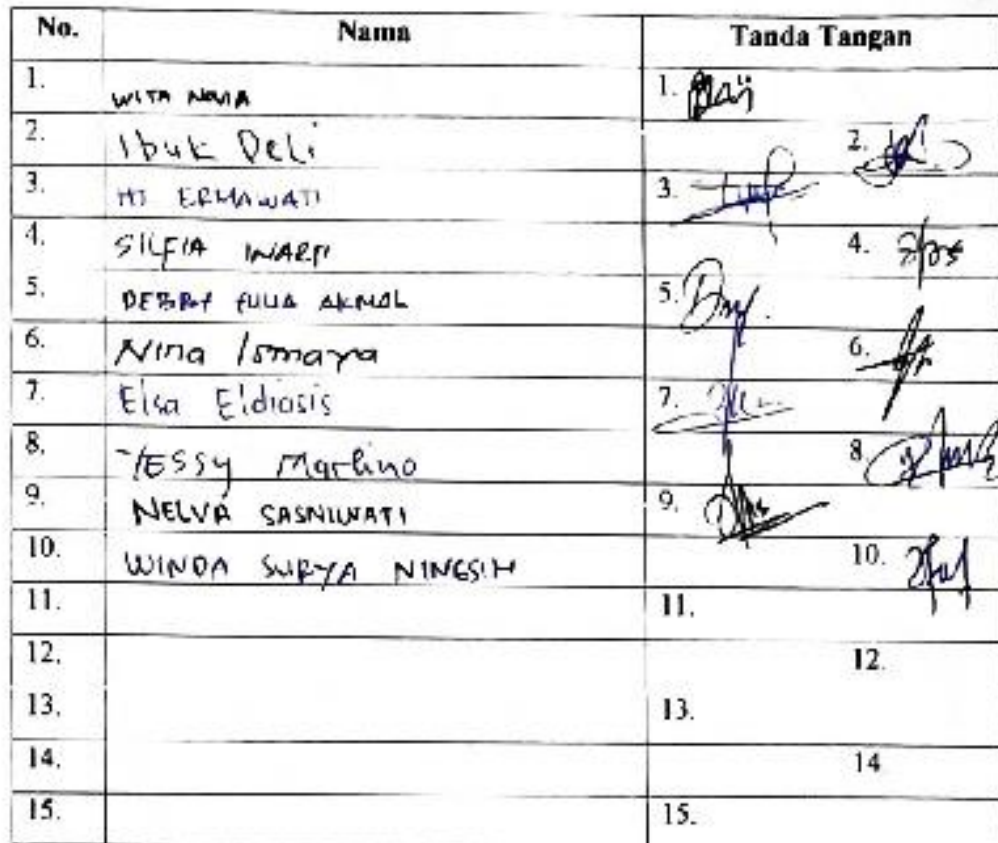 No. Nama Tanda Tangan
1. WITA NOVIA 1.
2. Ibuk Deli 2.
3. HJ ERMAWATI 3.
4. SILFIA 4.
5. AKMAL 5.
6. Nina Ismaya 6.
7. Elsa Eldiasis 7.
8. YESSY Marlina 8.
9. NELVA SASNILWATI 9.
10. WINDA SURYA NINGSIH 10.
11. 11.
12. 12.
13. 13.
14. 14
15. 15.